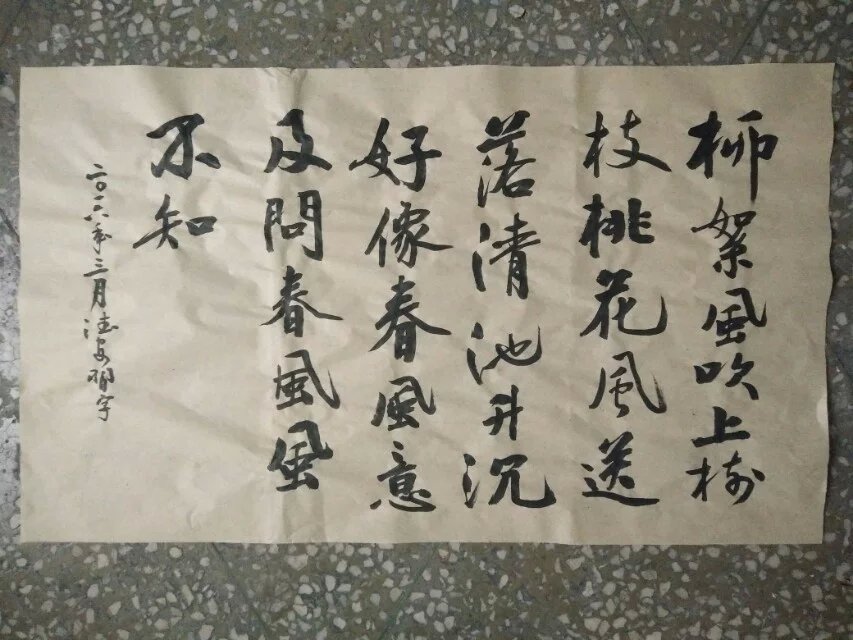 柳絮風吹上树
枝桃花風送
落清池升沉
好像春風意
及問春風風
不知
二〇一六年三月